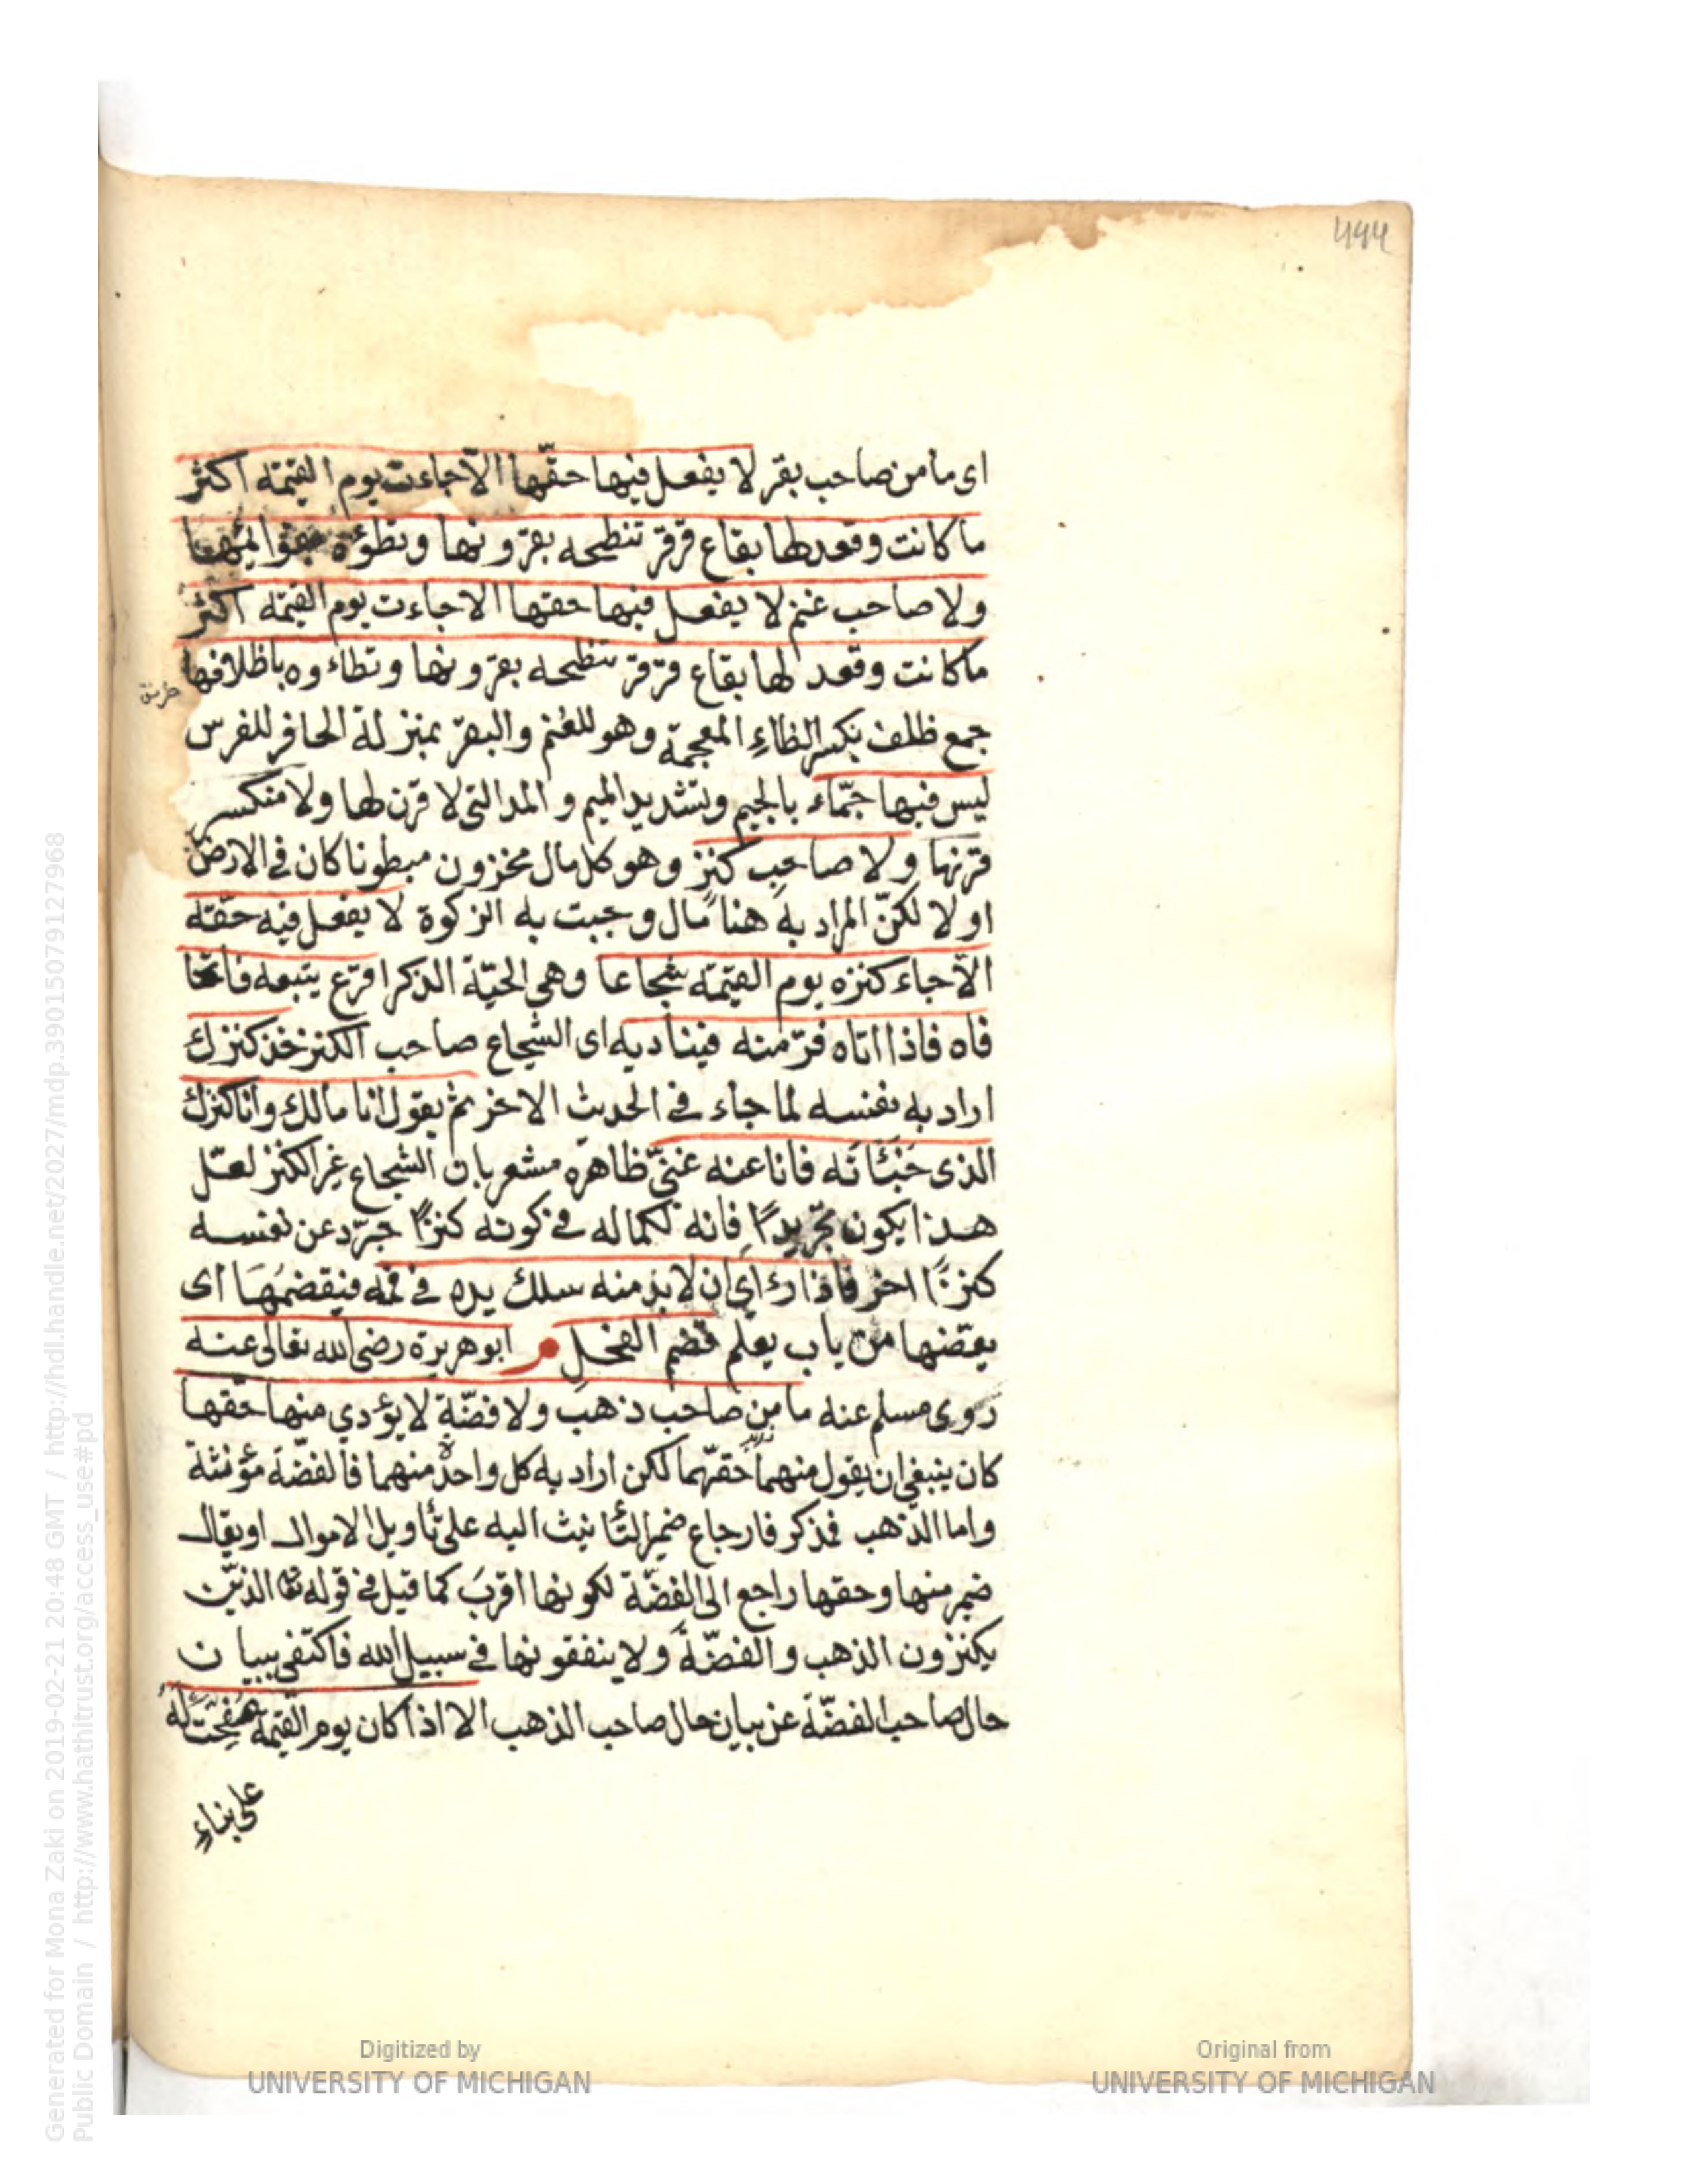 اى ما من صاحب بقر لا يفعل فيها حقّها الآجاءت يوم القيمة اكثر
ما كانت وقعد لها بقاع قرقر تنطحه بقرونها وتطؤه
ولا صاحب غنم لا يفعل فيها حقها الا جاءت يوم القيمة اكثر
ما كانت وقعد لها بقاع قرقر تنطحه بقرونها وتطاءوه باظلافها
جمع ظلف بكسر الظاءِ المعجمة وهو للغنم والبقر بمنزلة الحافر للفرس
ليس فيها جمّاء بالجيم وبتشديد الميم و المد التى لا قرن لها ولا منكسر
قرنها ولا صاحب كنز وهو كل مال مخزون مبطونا كان فى الارض
او لا لكنّ المراد به هنا مال وجبت به الزكوة لا يفعل فيه حقّه
الآجاء كنزه يوم القيمة شجاعا وهى الحيّة الذكر اقرع يتبعه فاتحا
فاه فاذا اتاه فرّ منه فيناديه اى الشجاع صاحب الكنز خذ كنزك
اراد به نفسه لما جاء فى الحديث الاخر ثم يقول انا مالك وانا كنزك
الذى خبّأته فانا عنه غنىّ ظاهره مشعر بان الشجاع غير الكنز لعلّ
هذا يكون تجريدًا فانه لكماله فى كونه كنزًا جرّد عن نفسه
كنزًا اخر فاذا رءاى ان لا بد منه سلك يده فى فمه فيقضمها اى
يعضّها من باب يعلم قضم الفحل ابو هريرة رضى الله تعالى عنه
روى مسلم عنه ما من صاحب ذهب ولا فضّة لا يؤدي منها حقّها
كان ينبغى ان يقول منهما حقّهما لكن اراد به كل واحدة منهما فالفضّة مؤنثة
واما الذهب فمذكر فارجاع ضمير التأنيث اليه على تأويل الاموال او يقال
ضمير منها وحقها راجع الى الفضّة لكونها اقرب كما قيل فى قوله تعا الذين
يكنزون الذهب و الفضّة ولا ينفقونها فى سبيل الله فاكتفى ببيان
حال صاحب الفضّة عن بيان حال صاحب الذهب الا اذا كان يوم القيمة صُفِحَتْ لَهُ
على بناءِ
Generated for Mona Zaki on 2019-02-21 20:48 GMT / http://hdl.handle.net/2027/mdp.39015079127968
Public Domain / http://www.hathitrust.org/access_use#pd
Digitized by
UNIVERSITY OF MICHIGAN
Original from
UNIVERSITY OF MICHIGAN